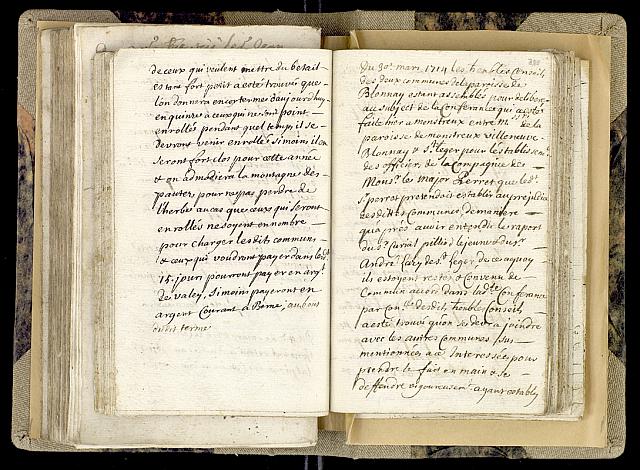 de ceux qui veulent mettre du betail
estant fort petit a esté trouvé que
lon donnera encor terme daujourdhuy
en quinze a ceux qui ne sont point
enrollés pendant quel temps il se
devront venir enrollé sinoins il en
seront forclos pour cette année
et on admodiera la montagne des
pautex pour ne pas perdre de
lherbe au cas que ceux qui seront
enrollés ne soyent en nombre
pour charger lesdits communs
& ceux qui voudront payer dans led.
15. jour pourront payer en argt.
de valey, sinoins payeront en
argent Courant a Berne, au bout
dudit terme
Du 30e. mars 1714 les honbles Conseils
des deux communes de la parroisse de
Blonnay estant assemblés pour deliberer
au subject de la Conference qui a esté
faite hier a monstreux entre Mssrs. de la
paroisse de monstreux villeneuve
Blonnay & St. leger pour lestablissemt.
des officier, de la Compagnie de
Monsr. le major Perret que led.
Sr. perret pretendoit establir au prejudice
desdittes Communes de maniere
qua prés avoir entendu le raport
du Sr. Curial pilliod le jeune & du Sr.
André Caley de St. leger de ce a quoy
ils estoyent restés & Convenu de
Commun accord dans ladte. Conference
par Con. desdits honbles Conseils
a esté trouvé quon se devra joindre
avec les autres Communes sus
mentionnées a ce Interessées pour
prendre le fait en main & se
deffendre vigoureusemt. ayant estably